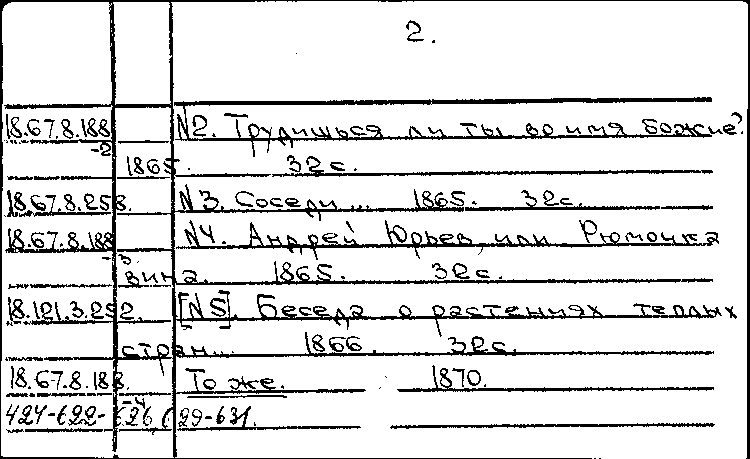 2.
18.67.8.188 N2. Трудишься ли ты во имя божие?
-2 1865. 32с.
18.67.8.258. N3. Соседи... 1865. 32с.
18.67.8.188 N4. Андрей Юрьев, или Рюмочка
-3 вина. 1865. 32с.
18.121.3.252. [N5]. Беседа о растениях теплых
стран... 1866. 32с.
18.67.8.188. То же. 1870.
-4
424-622- 626, 629-631.